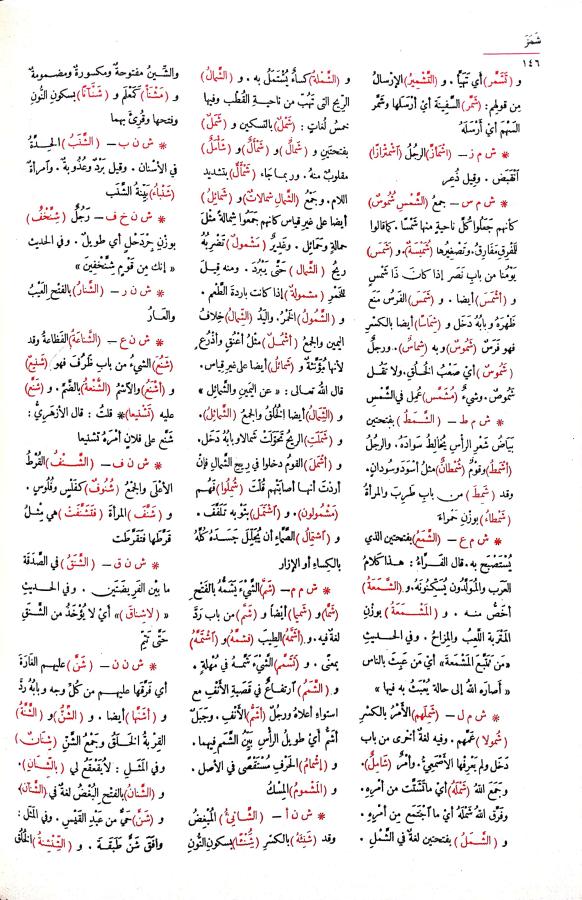 شَمَزَ
١٤٦
و (تَشَمَّر) أي تَهَيَّأَ . و (التَّشْمِيرُ) الإرْسالُ
مِن قولهم : (شَمَّر) السَّفِينَةَ أيْ أرْسَلَها وشَمَّر
السَّهْمَ أيْ أَرْسَلَهُ
* ش م ز ــ (اشْمَأَزَّ) الرجُلُ (اشْمِئْزازًا)
انْقَبَضَ . وقيلَ ذُعِر
* ش م س ــ جمعُ (الشَّمْسِ شُمُوسٌ)
كأنهم جَعَلُوا كُلَّ ناحيةٍ منها شَمْسا . كما قالوا
لِلْفَرِقِ مَفَارِقُ . وتصْغِيرُها (شُمَيْسَةٌ) . و (شَمَس)
يَوْمُنا من باب نَصَر إذا كان ذا شَمْسٍ
و (أشْمَسَ) أيضا . و (شَمَسَ) الفَرَسُ مَنَع
ظَهْرَهُ وبابُهُ دَخَل و (شِمَاسًا) أيضا بالكسر
فهو فَرَسٌ (شَمُوسٌ) وبه (شِماسٌ) . ورجلٌ
(شَمُوسٌ) أيْ صَعْبُ الخُلُق . ولا تَقُل
شَمُوصٌ . وشيءٌ (مُشَمَّسٌ) عُمِل في الشَّمْسِ
* ش م ط ــ (الشَّمَطُ) بفتحتين
بَيَاضُ شَعْرِ الرأْسِ يُخالِطُ سَوادَهُ . والرجُلُ
(أشْمَطُ) وقَوْمٌ (شُمْطَانٌ) مثلُ أسْوَدَ وسُودانٍ .
وقد (شَمِطَ) من بابِ طَرِبَ والمرأةُ
(شَمْطَاءُ) بوزنِ حَمراءَ
* ش م ع ــ (الشَّمَعُ) بفتحتين الذي
يُسْتَصْبَحُ به . قال الفَرَّاءُ : هذا كلامُ
العَرب والمُوَلَّدُون يُسَكِّنُونَهُ و (الشَّمَعَةُ)
أخصُّ منه . و (المَشْمَعَةُ) بوزْنِ
المَتْرَبَةِ اللَّعِبُ والمِزاحُ . وفي الحديثِ
«مَنْ تَتَبَّعَ المَشْمَعَةَ» أيْ مَنْ عَبِثَ بالناسِ
« أَصَارَهُ اللهُ إلى حالَةٍ يُعْبَثُ به فيها »
* ش م ل ــ (شَمِلَهم) الأَمْرُ بالكسرِ
(شُمولا) عَمَّهم . وفيه لغةٌ أخرى من باب
دَخَل ولم يَعرِفها الأصْمَعِيُّ . وأمرٌ (شامِلٌ) .
وجَمَع اللهُ (شَمْلَهُ) أيْ ما تَشَتَّتَ من أمْرِهِ .
وفَرَّق اللهُ شَمْلَهُ أيْ ما اجْتَمَع مِن أمْرِهِ .
و (الشَّمَلُ) بفتحتين لغةٌ في الشَّمْلِ .
و (الشَّمْلَةُ) كساءٌ يُشْتَمَلُ به . و (الشَّمَالُ)
الرِّيح التي تَهُبّ من ناحيةِ القُطْب وفيها
خمسُ لُغاتٍ : (شَمْلٌ) بالتسكين و (شَمَلٌ)
بفتحتين و (شَمالٌ) و (شَمْأَلٌ) و (شَأْمَلٌ)
مَقلوبٌ منه . وربما جاءَ (شَمْأَلٌّ) بتشديد
اللام . وجَمْعُ (الشَّمالِ شَمالاتٌ) و (شَمائِلُ)
أيضا على غير قياس كأنهم جَمَعوا شِمَالةً مثْلَ
حمالةٍ وحَمائِلَ . وغَدِيرٌ (مَشْمُولٌ) تَضْرِبُهُ
ريحُ (الشَّمالِ) حَتَّى يَبْرُدَ . ومنه قيلَ
للخَمْرِ (مشمولةٌ) إذا كانت باردةَ الطَّعْم .
و (الشَّمُولُ) الخَمْرُ . واليَدُ (الشِّمالُ) خِلافُ
اليمين والجمعُ (أشْمُلٌ) مثلُ أعْنُقٍ وأذْرُعٍ
لأنها مُؤَنَّثةٌ و (شمائِلُ) أيضا على غير قياس .
قال الله تعالى : « عن اليَمينِ والشَّمائِلِ »
و (الشِّمَالُ) أيضا الخُلُقُ والجمعُ (الشَّمائِلُ) .
و (شَمَلَتِ) الريحُ تَحَوَّلَتْ شَمالا وبابُهُ دَخَل .
و (أَشْمَلَ) القومُ دخلوا في ريحِ الشَّمالِ فإنْ
أردْتَ أنها أصابَتْهم قُلْتَ (شُمِلُوا) فَهُم
(مَشْمُولون) . و (اشْتَمَلَ) بثَوْبِهِ تَلَفَّفَ .
و (اشْتِمَالُ) الصَّمَّاءِ أن يُجَلِّلَ جَسَدَهُ كُلَّهُ
بالكِساءِ أو الإزار
* ش م م ــ (شَمَّ) الشيْءَ يَشَمُّهُ بالفَتْحِ
(شَمًّا) و (شَمِيمًا) أيضًا و (شَمَّ) من باب رَدَّ
لُغةٌ فيه . و (أَشَمَّهُ) الطِيبَ (فشَمَّهُ) و (اشْتَمَّهُ)
بمعنًى . و (تَشَمَّم) الشَّيْءَ شَمَّهُ في مُهْلةٍ .
و (الشَّمَمُ) ارْتِفاعٌ في قَصَبةِ الأَنْفِ مع
استِواءِ أعلاهُ ورجُلٌ (أشَمُّ) الأَنْفِ . وجَبَلٌ
أشَمُّ أيْ طويلُ الرأْسِ بَيِّنُ الشَّمَمِ فيهما .
و (إشمامُ) الحَرْفِ مُسْتَقْصًى في الأصل .
و (المَشْمُومُ) المِسْكُ
* ش ن أ ــ (الشَّانِئُ) المُبْغِضُ
وقد (شَنِئَهُ) بالكسرِ (شَنْئًا) بسكون النُّونِ
والشِّينُ مفتوحةٌ ومكسورةٌ ومضمومةٌ
و (مَشْنَأً) كمَعْلَمٍ و (شَنْآنًا) بسكون النُّونِ
وفتحِها وقُرِئَ بهما
* ش ن ب ــ (الشَّنَبُ) الحِدَّةُ
في الأسْنانِ . وقيل بَرْدٌ وعُذُوبةٌ . وامرأةٌ
(شَنْبَاءُ) بَيِّنَةُ الشَّنَبِ
* ش ن خ ف ــ رَجُلٌ (شِنَّخْفٌ)
بوزنِ جِرْدَحْلٍ أي طويلٌ . وفي الحديث
« إنك مِن قَومٍ شِنَّخْفِينَ »
* ش ن ر ــ (الشَّنَارُ) بالفَتْحِ العَيْبُ
والعَارُ
* ش ن ع ــ (الشَّناعَةُ) الفَظاعةُ وقد
(شَنُعَ) الشيءُ من باب ظَرُفَ فهو (شَنِيعٌ)
و (أشْنَعُ) والاسْمُ (الشُّنْعَةُ) بالضَّمّ . و (شَنَّع)
عليه (تَشْنِيعا) * قلتُ : قال الأزهَرِيُّ :
شَنَّع على فُلانٍ أمرَهُ تَشنيعا
* ش ن ف ــ (الشَّنْفُ) القُرْطُ
الأعْلَى والجَمْعُ (شُنُوفٌ) كَفَلْسٍ وفُلُوسٍ .
و (شَنَّفَ) المرْأةَ (فَتَشَنَّفَتْ) هي مِثْلُ
قَرَّطَها فتَقَرَّطَت
* ش ن ق ــ (الشَّنَقُ) في الصَّدَقة
ما بين الفَرِيضَتَيْنِ . وفي الحديثِ
« لا شِنَاقَ » أيْ لا يُؤْخَذُ من الشَّنَقِ
حَتَّى تَتِمَّ
* ش ن ن ــ (شَنَّ) عليهم الغَارَةَ
أيْ فَرَّقَها عليهم من كلّ وجه وبابُهُ رَدَّ
و (أشَنَّها) أيضا . و (الشَّنُّ) و (الشَّنَّةُ)
القِرْبةُ الخَلَقُ وجَمْعُ الشَّنِّ (شِنَانٌ)
وفي المَثَلِ : لا يُقَعْقَعُ لي (بالشِّنان) .
و (الشَّنانُ) بالفتح البُغْضُ لغةٌ في (الشَّنَآن)
و (شَنٌّ) حَيٌّ من عَبدِ القَيْس . وفي المَثَل :
وافَقَ شَنٌّ طَبَقَةَ . و (الشِّنْشِنَةُ) الخُلُقُ